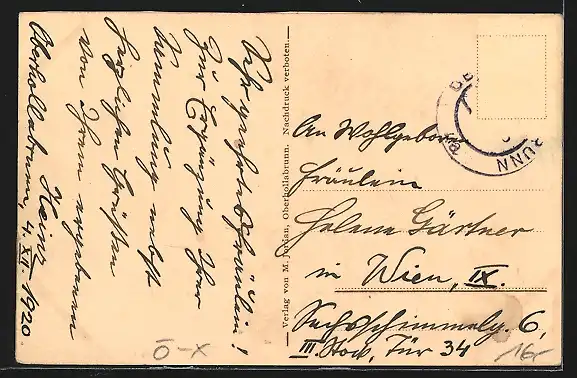 Sehr geehrtes Fräulein!
Zur Ergänzung Ihrer
Sammlung nebst
herzlichen Grüßen
von Ihrem ergebenen
Heinz
Oberhollabrunn, 4. VII. 1920
— Verlag von M. Jordan, Oberhollabrunn. Nachdruck verboten. —
An Wohlgeboren
Fräulein
Helene Gärtner
in Wien, IX.
Sechsschimmelg. 6,
III. Stock, Tür 34
Ö-X
16,-
RUNN